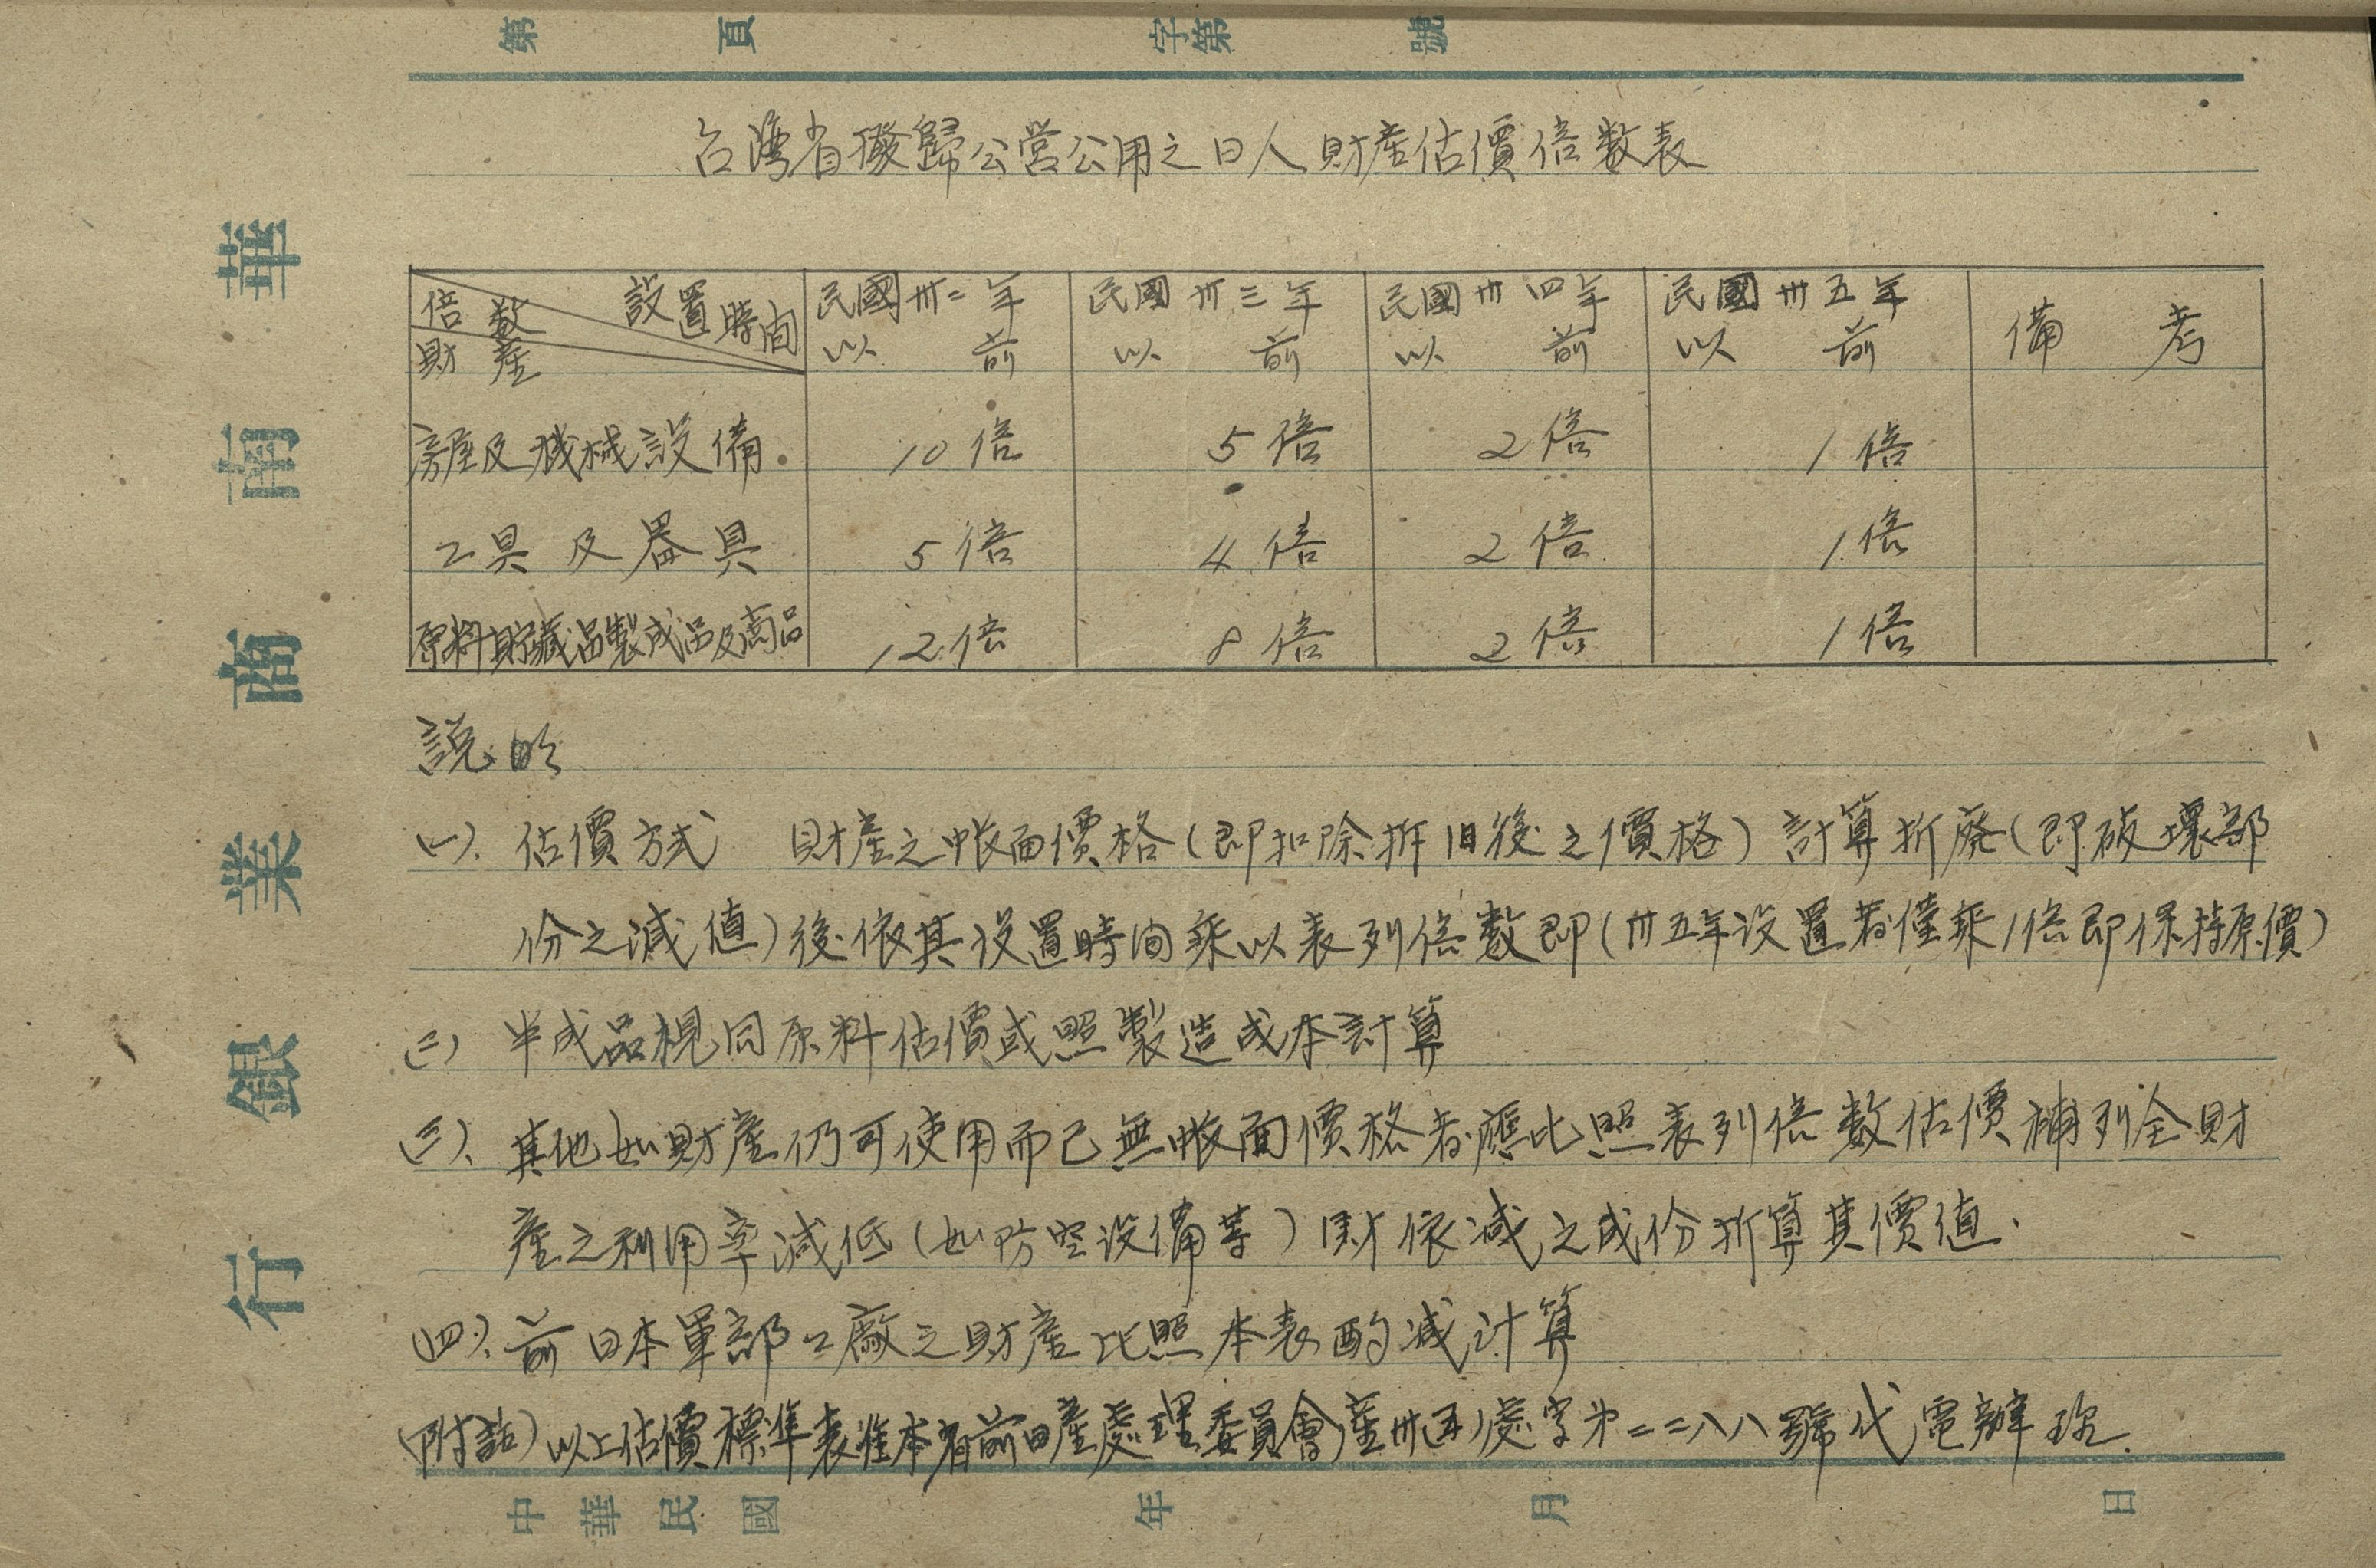 第 頁 字第 號
台灣省撥歸公營公用之日人財產估價倍數表
倍數 設置時間 財產
民國卅二年以前 民國卅三年以前 民國卅四年以前 民國卅五年以前 備考
房屋及機械設備 10倍 5倍 2倍 1倍
工具及器具 5倍 4倍 2倍 1倍
原料貯藏品製成品及商品 12倍 8倍 2倍 1倍
説明
(一)、估價方式 財產之帳面價格(即扣除折旧後之價格)計算折廢(即破壞部
份之減值)後依其設置時间乘以表列倍數即(卅五年設置者僅乘1倍即保持原價)
(二) 半成品視同原料估價或照製造成本計算
(三)、其他如財產仍可使用而已無帳面價格者應比照表列倍數估價補列全財
產之利用率減低(如防空設備等)財依減之成份折算其價值.
(四)、前日本軍部工廠之財產比照本表酌減計算
(附註)以上估價標準表准本省前日產處理委員會產卅五處字第二二八八號代電辦理.
中華民國 年 月 日
華南商業銀行